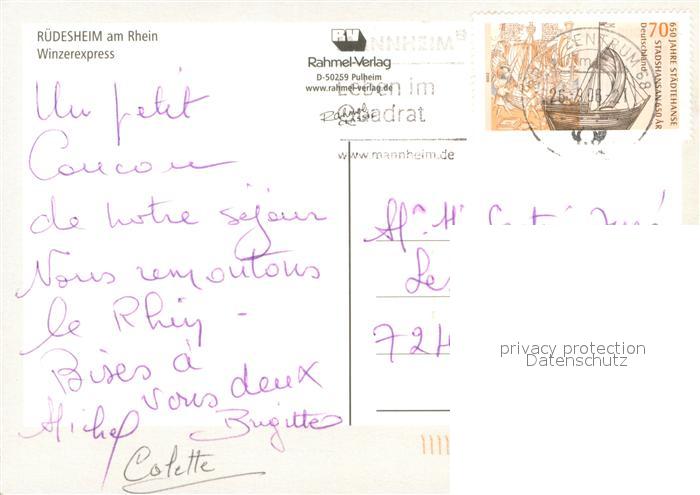 RÜDESHEIM am Rhein
Winzerexpress
RV
Rahmel-Verlag
D-50259 Pulheim
www.rahmel-verlag.de
MANNHEIM
Leben im
Quadrat
www.mannheim.de
70
650 JAHRE STÄDTEHANSE
STADSHANSAN 650 ÅR
Deutschland
ZENTRUM 68
Un petit
Coucou
de notre séjour
Nous remontons
le Rhin -
Bises à
vous deux
Michel Brigitte
Colette
724
privacy protection
Datenschutz